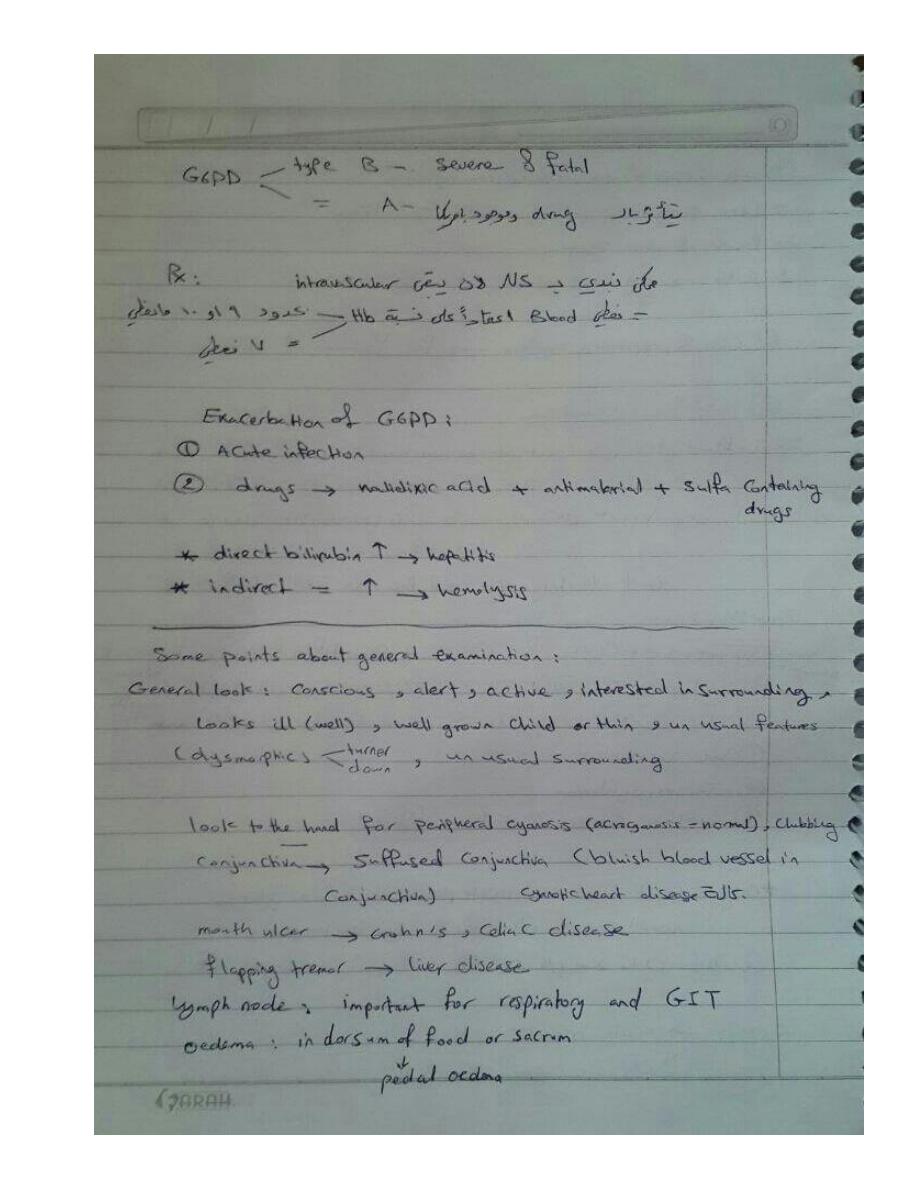 G6PD type B - severe & fatal
= A - يتأثر بالـ drug وموجود بامريكا
Rx: ممكن نبدي بـ NS لان يبقى intravascular
= نعطي Blood اعتماداً على نسبة Hb بحدود ٩ او ١٠ مانعطي
= ٧ نعطي
Exacerbation of G6PD:
① Acute infection
② drugs → nalidixic acid + antimalarial + sulfa containing
drugs
* direct bilirubin ↑ → hepatitis
* indirect = ↑ → hemolysis
Some points about general examination:
General look: Conscious, alert, active, interested in surrounding,
Looks ill (well), well grown child or thin, un usual features
(dysmorphic) turner
down, un usual surrounding
look to the hand for peripheral cyanosis (acrocyanosis = normal), clubbing
Conjunctiva → suffused conjunctiva (bluish blood vessel in
conjunctiva) cyanotic heart disease
mouth ulcer → crohn's, celiac disease
flapping tremor → liver disease
lymph node: important for respiratory and GIT
oedema: in dorsum of food or sacrum
↓
pedal oedema
SARAH